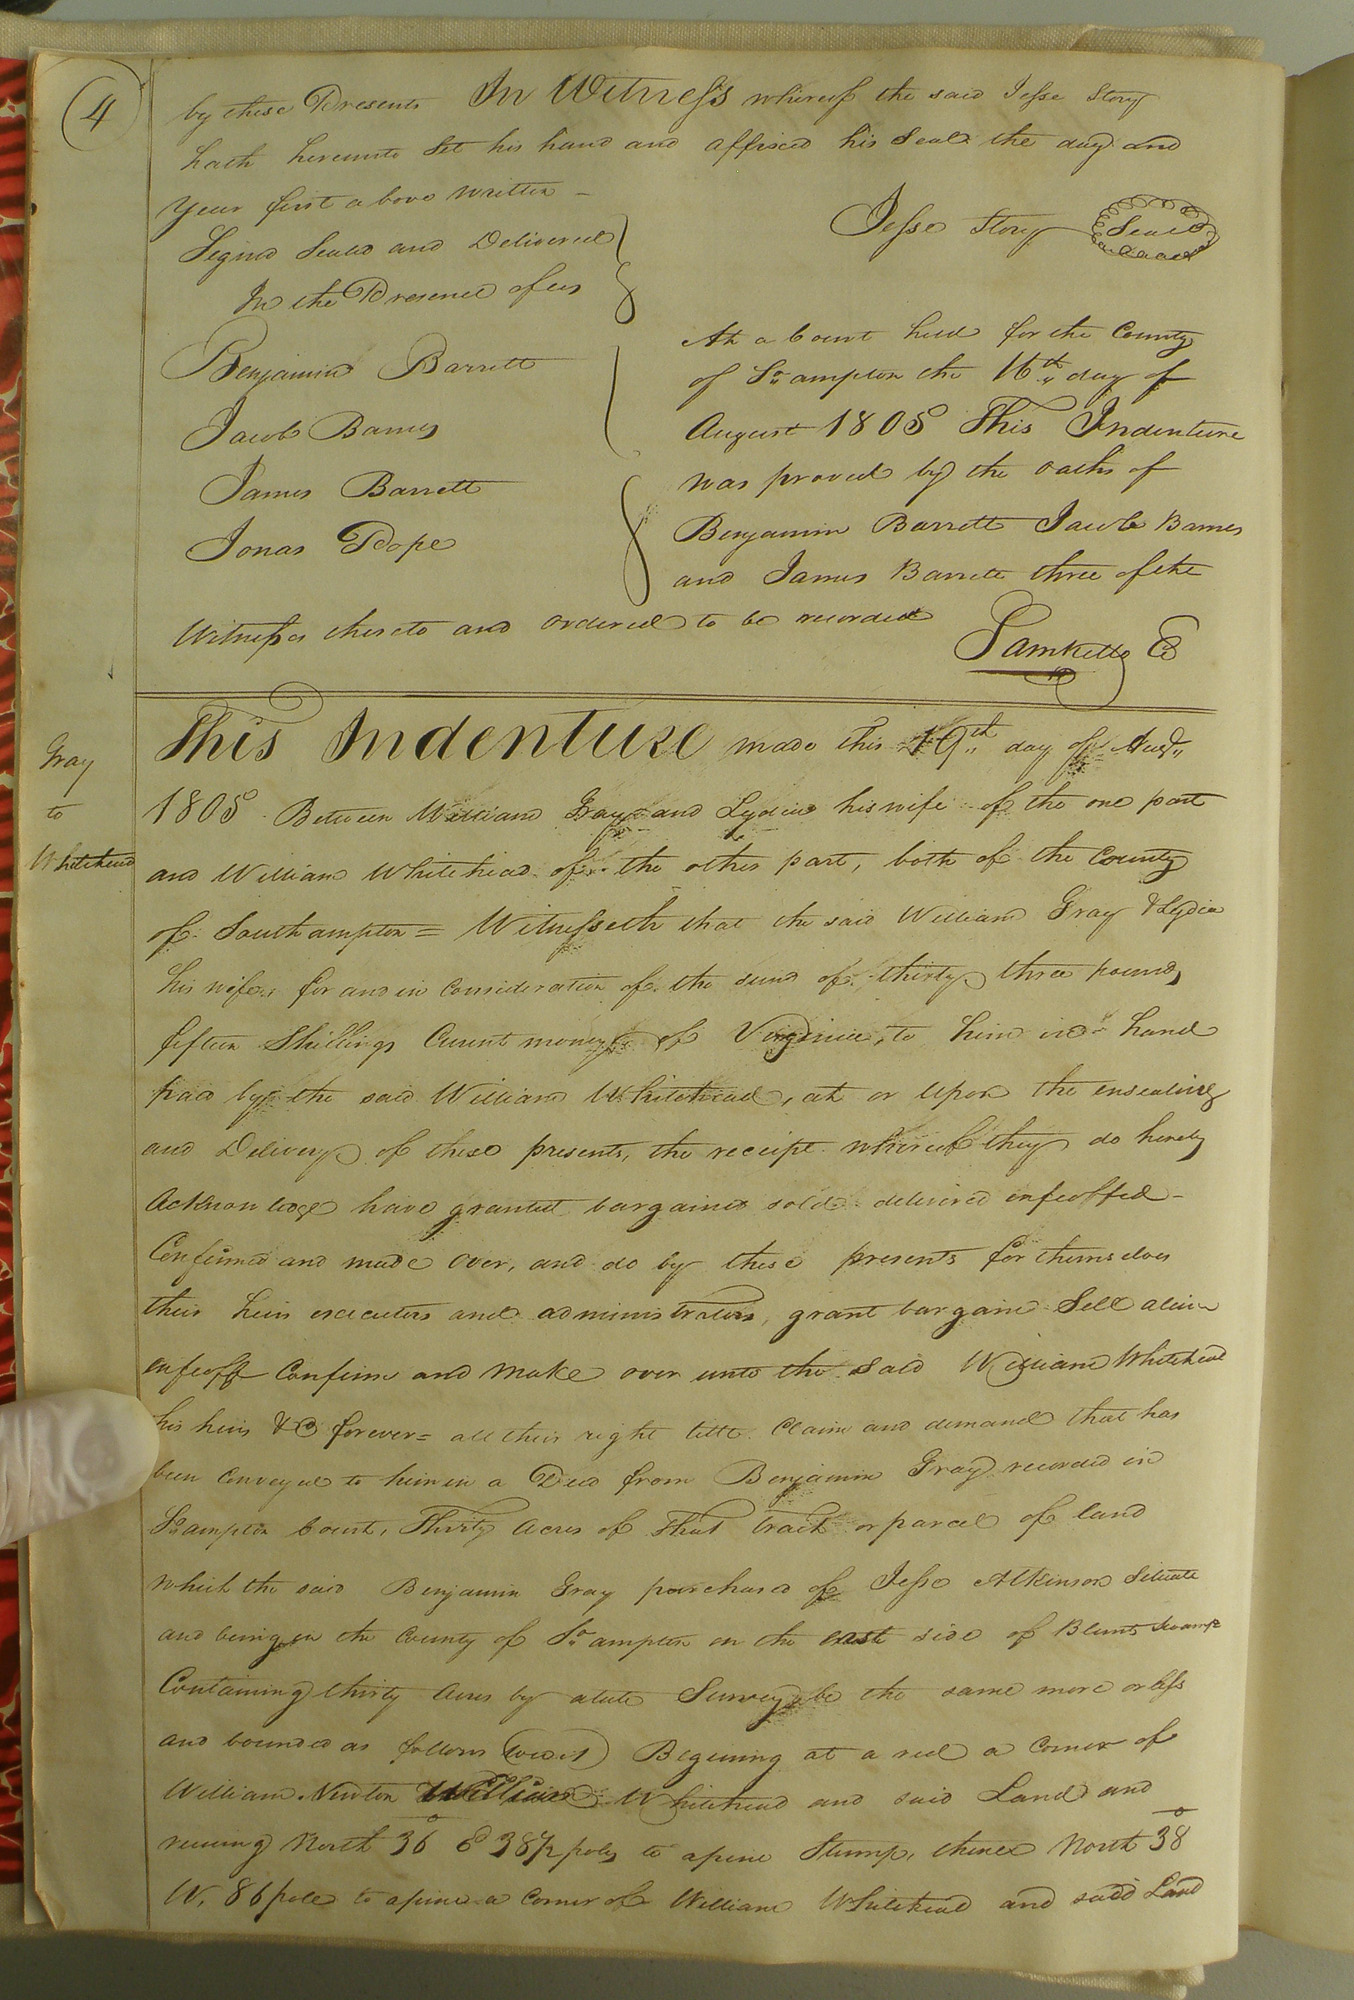 4
by these Presents In Witness whereof the said Jesse Story
hath hereunto Set his hand and affixed his Seal the day and
Year first above written –
Jesse Story Seal
Signed Sealed and Delivered
In the Presence of us
Benjamin Barrett
Jacob Barnes
James Barrett
Jonas Pope
At a Court held for the County
of So. ampton the 16th day of
August 1805 This Indenture
was proved by the oaths of
Benjamin Barrett Jacob Barnes
and James Barrett three of the
Witnesses thereto and ordered to be recorded
Sam Kello C
Gray
to
Whitehead
This Indenture made this 19th day of Augt.
1805 Between William Gray and Lydia his wife of the one part
and William Whitehead of the other part, both of the County
of Southampton = Witnesseth that the said William Gray & Lydia
his wife, for and in Consideration of the sum of thirty three pounds
fifteen Shillings Curent money of Virginia, to him in hand
paid by the said William Whitehead, at or Upon the ensealing
and Delivery of these presents, the receipt whereof they do hereby
Acknowledge have granted bargained sold delivered enfeoffed –
Confirmed and made over, and do by these presents for themselves
their heirs executors and administrators, grant bargain Sell alien
enfeoff Confirm and Make over unto the Said William Whitehead
his heirs &C forever = all their right title Claim and demand that has
been Conveyed to him in a Deed from Benjamin Gray recorded in
So. ampton Court, Thirty Acres of That tract or parcel of land
which the said Benjamin Gray purchased of Jesse Atkinson Situate
and being in the County of So. ampton on the east side of Blunts Swamp
Containing thirty Acres by a late Survey be the same more or less
and bounded as follows (to wit) Begining at a red a Corner of
William Newton William Whitehead and said Land and
runing North 36° E 38 1/2 poles to a pine Stump, thence North 38°
W. 86 pole to a pine a Corner of William Whitehead and said Land